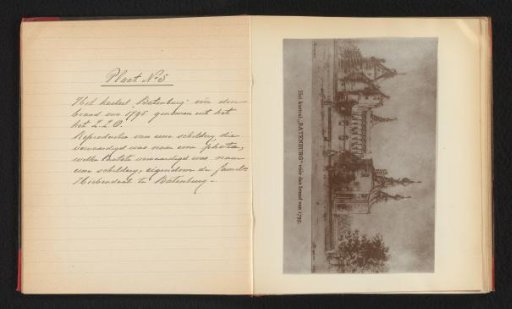 Plaat No 5
Het kasteel Batenburg vóór den
brand van 1795 genomen uit het
het Z.Z.O.
Reproductie van eene schilderij die
vervaardigd was naar eene schets,
welke vervaardigd was naar
eene schilderij, eigendom der familie
te Batenburg.
Het kasteel „BATENBURG” vóór den brand van 1795.